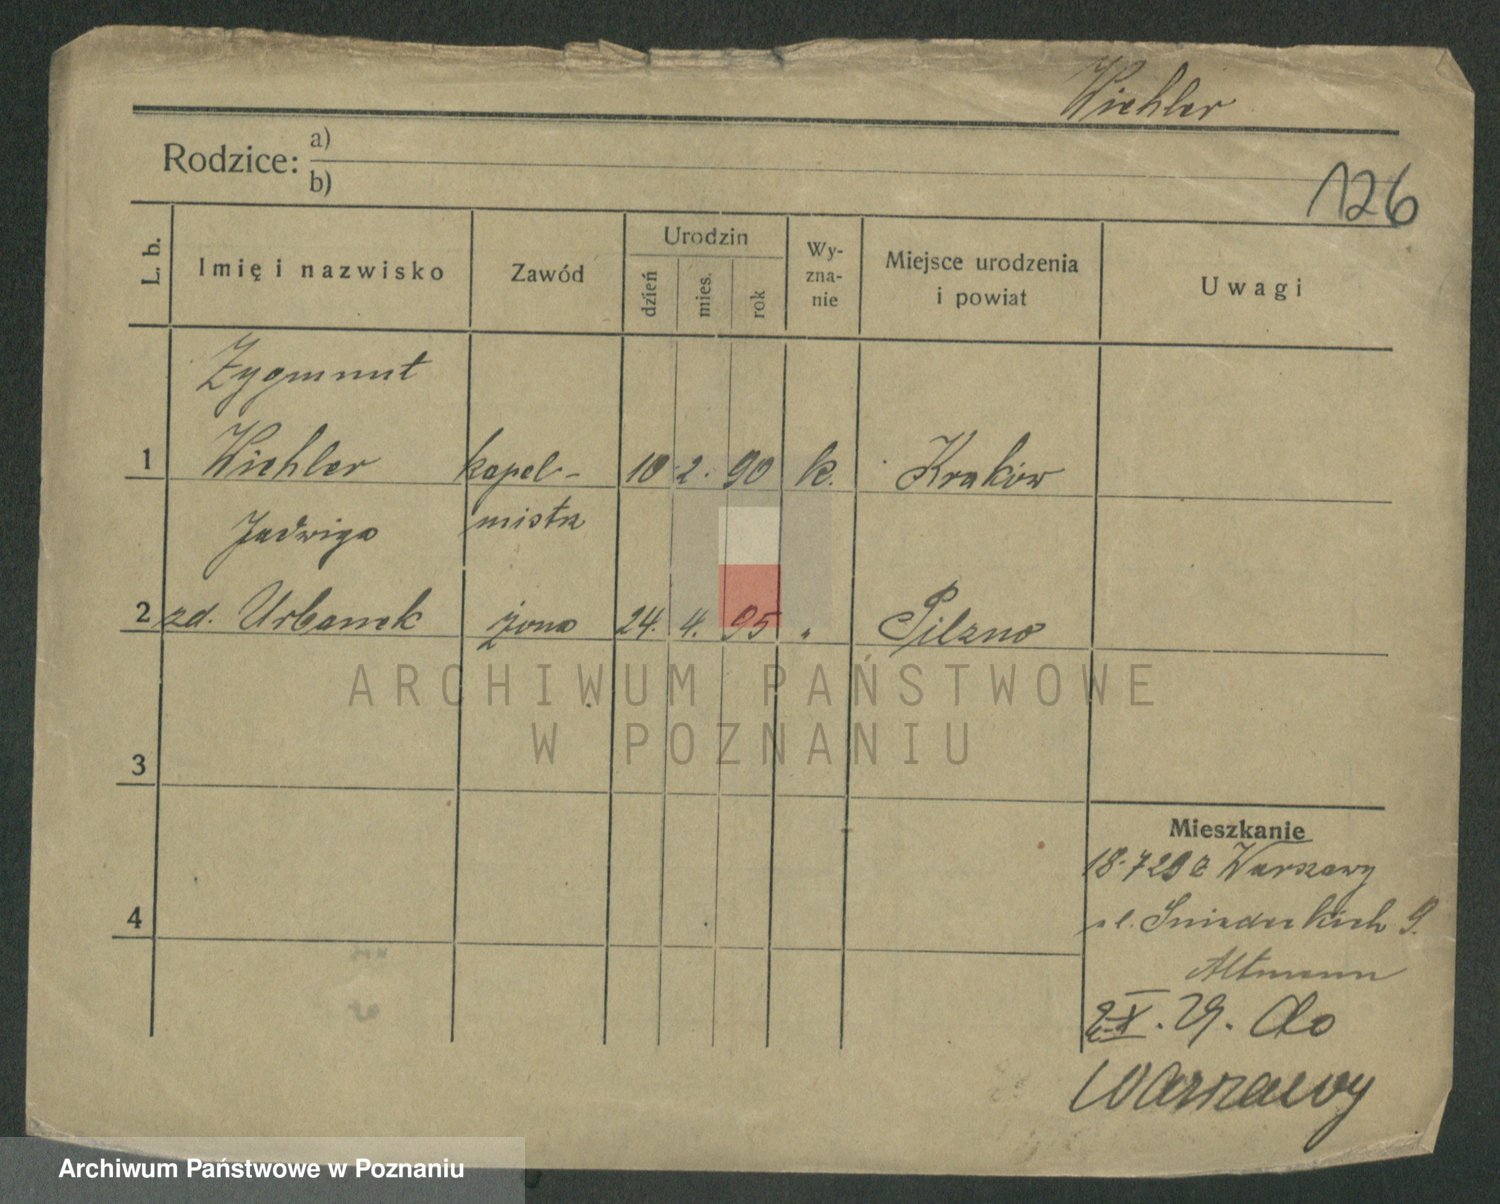 Wiehler
Rodzice: a)
b)
126
L. b.
Imię i nazwisko
Zawód
Urodzin
dzień
mies.
rok
Wy-
zna-
nie
Miejsce urodzenia
i powiat
Uwagi
Zygmunt
1 Wiehler kapel- 10 2. 90 k. Kraków
Jadwiga mistrz
2 zd. Urbanek żona 24. 4. 95 " Pilzno
ARCHIWUM PAŃSTWOWE
W POZNANIU
3
4
Mieszkanie
18.729 z Warszawy
ul. Śniadeckich 9.
Altmann
2 X. 29. do
Warszawy
Archiwum Państwowe w Poznaniu